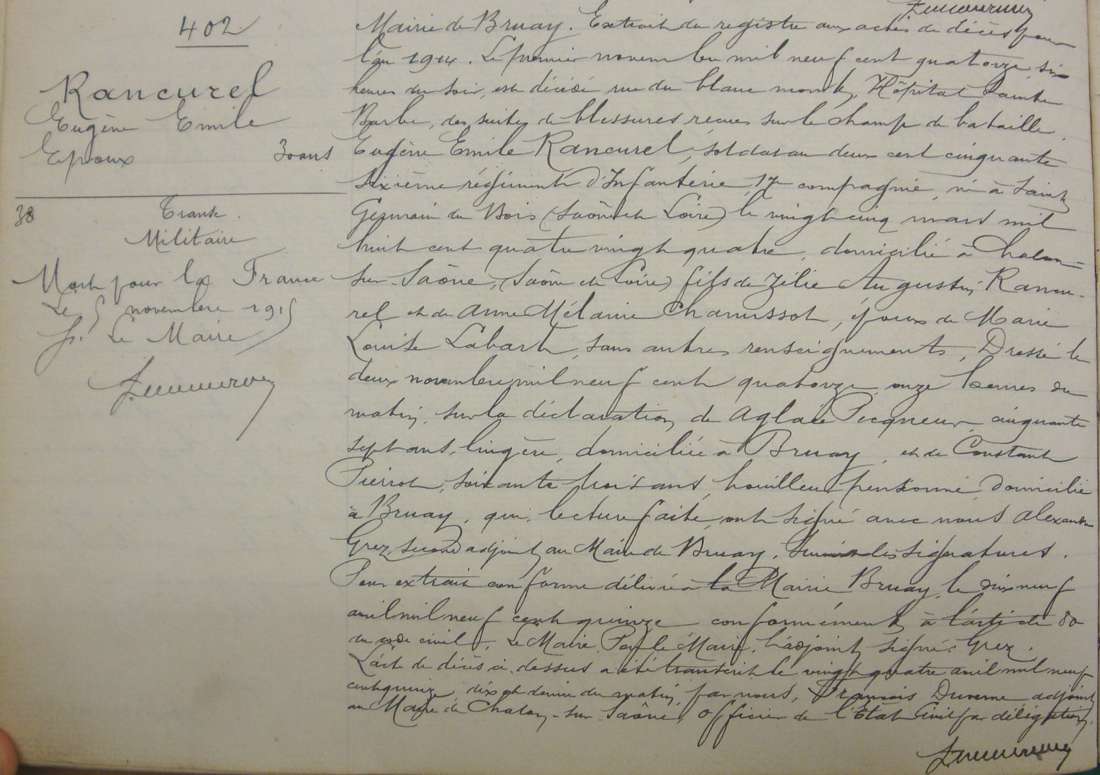 402
Rancurel
Eugène Emile
Epoux 30 ans
38
Transc.
Militaire
Mort pour la France
Le 5 novembre 1915
P. Le Maire
Mairie de Bruay. Extrait du registre aux actes de décès pour
l'an 1914. Le premier novembre mil neuf cent quatorze, six
heures du soir, est décédé rue du blanc mont, Hôpital Sainte
Barbe, des suites de blessures reçues sur le champ de bataille.
Eugène Emile Rancurel, soldat au deux cent cinquante
sixième régiment d'Infanterie 17e compagnie, né à Saint
Germain du Bois (Saône et Loire) le vingt cinq mars mil
huit cent quatre vingt quatre, domicilié à Chalon-
sur-Saône, (Saône et Loire) fils de Zélie Augustin Rancu-
rel et de Anne Mélanie Chamussot, époux de Marie
Louise Labart, sans autres renseignements, Dressé le
deux novembre mil neuf cent quatorze onze heures du
matin, sur la déclaration de Aglaée Picqueur, cinquante
sept ans, lingère, domiciliée à Bruay, et de Constant
Pierrot, soixante trois ans, houilleur pensionné, domicilié
à Bruay, qui, lecture faite, ont signé avec nous Alexandre
Grez second adjoint au Maire de Bruay. Suivent les signatures.
Pour extrait conforme délivré à la Mairie Bruay, le dix neuf
avril mil neuf cent quinze conformément à l'article 80
du code civil. Le Maire, Pour le Maire, l'adjoint signé: Grez.
L'acte de décès ci-dessus a été transcrit le vingt quatre avril mil neuf
cent quinze, dix et demie du matin, par nous, François Duverne adjoint
au Maire de Chalon-sur-Saône, Officier de l'Etat Civil par délégation.